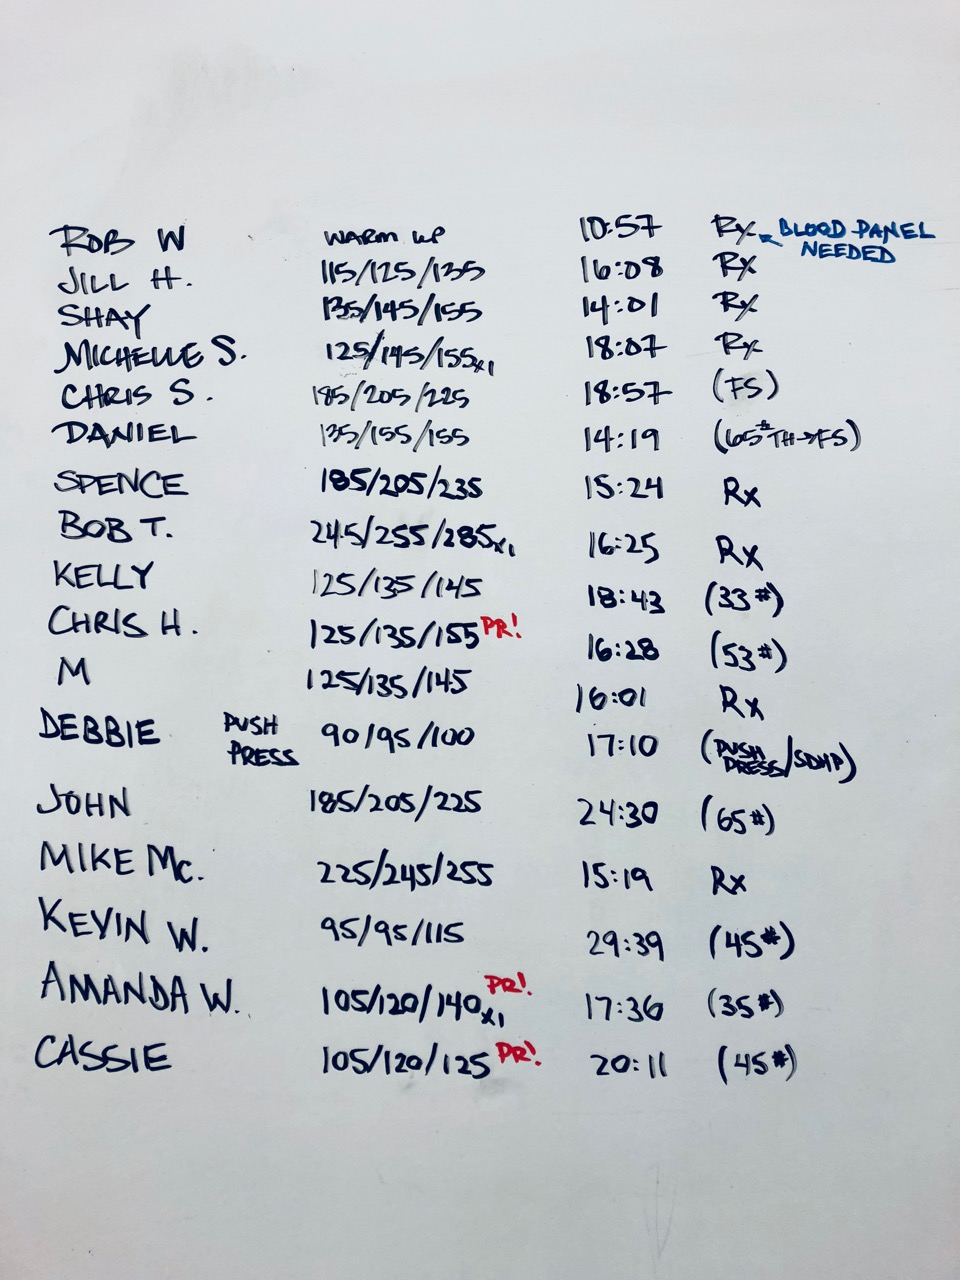 ROB W WARM UP 10:57 Rx ← BLOOD PANEL
NEEDED
JILL H. 115/125/135 16:08 Rx
SHAY 135/145/155 14:01 Rx
MICHELLE S. 125/145/155x1 18:07 Rx
CHRIS S. 185/205/225 18:57 (FS)
DANIEL 135/155/155 14:19 (65# TH→FS)
SPENCE 185/205/235 15:24 Rx
BOB T. 245/255/285x1 16:25 Rx
KELLY 125/135/145 18:43 (33#)
CHRIS H. 125/135/155 PR! 16:28 (53#)
M 125/135/145 16:01 Rx
DEBBIE PUSH PRESS 90/95/100 17:10 (PUSH PRESS/SDHP)
JOHN 185/205/225 24:30 (65#)
MIKE Mc. 225/245/255 15:19 Rx
KEVIN W. 95/95/115 29:39 (45#)
AMANDA W. 105/120/140x1 PR! 17:36 (35#)
CASSIE 105/120/125 PR! 20:11 (45#)